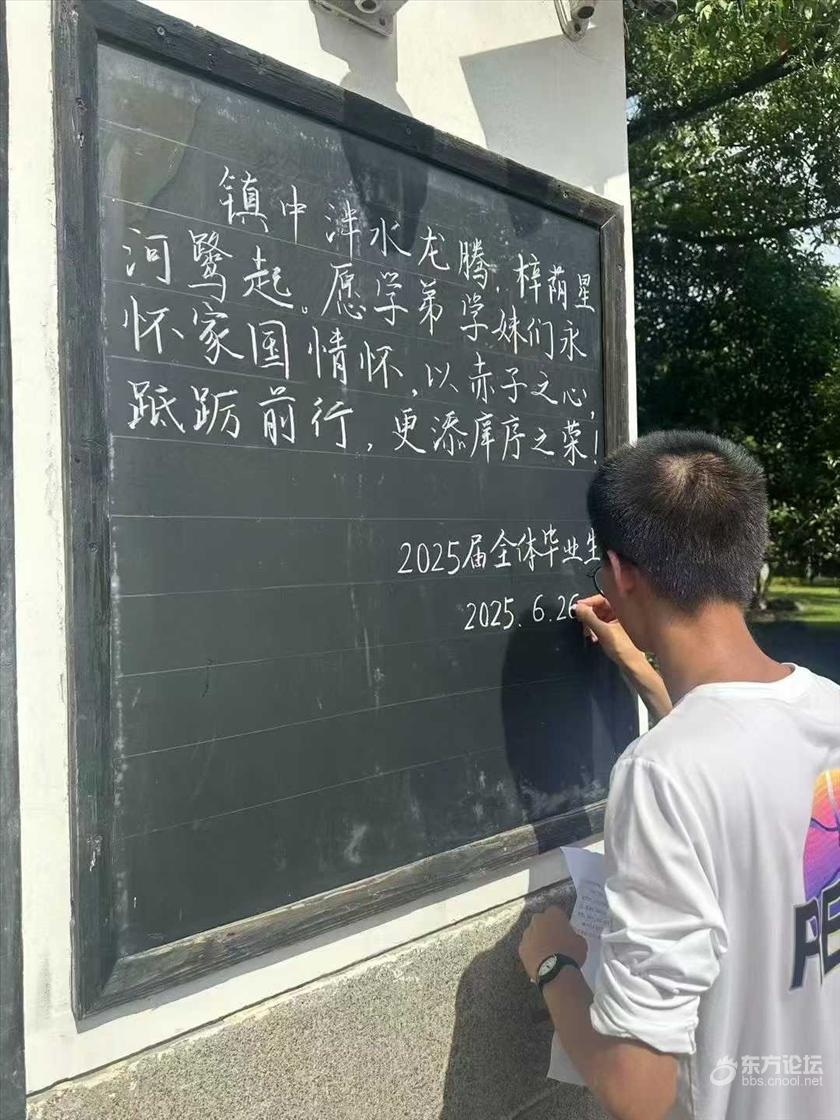 镇中泮水龙腾，梓荫星
河鹭起。愿学弟学妹们永
怀家国情怀，以赤子之心，
踔厉前行，更添庠序之荣！
2025届全体毕业生
2025.6.26
PE
东方论坛
bbs.cnool.net